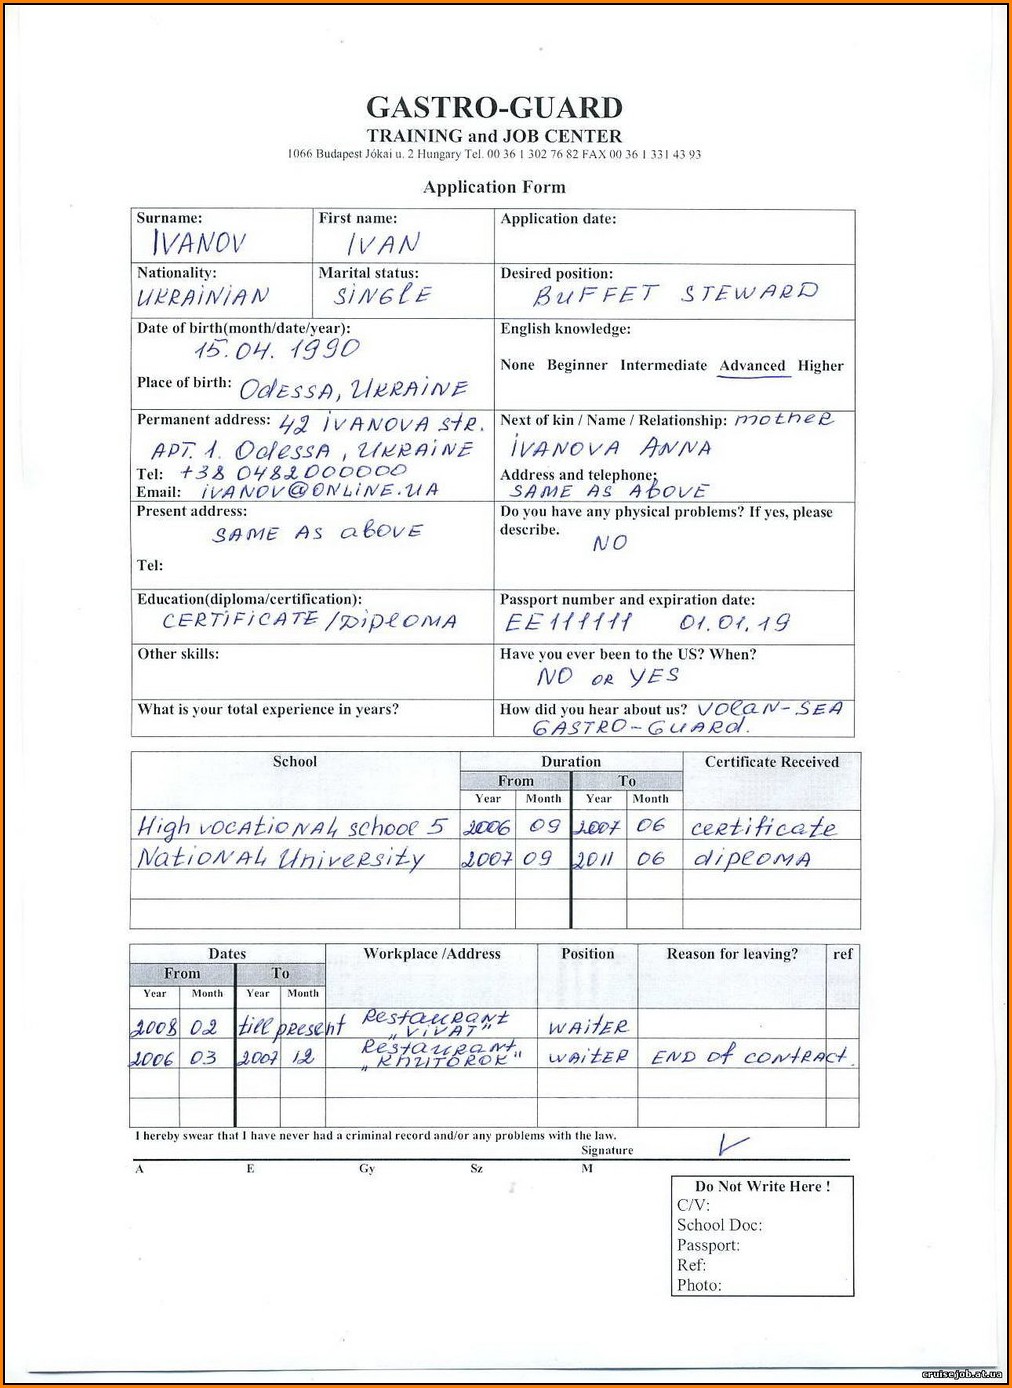 GASTRO-GUARD
TRAINING and JOB CENTER
1066 Budapest Jókai u. 2 Hungary Tel. 00 36 1 302 76 82 FAX 00 36 1 331 43 93
Application Form
Surname: First name: Application date:
IVANOV IVAN
Nationality: Marital status: Desired position:
UKRAINIAN SINGLE BUFFET STEWARD
Date of birth(month/date/year): English knowledge:
15.04.1990
None Beginner Intermediate Advanced Higher
Place of birth: Odessa, UKRAINE
Permanent address: 42 IVANOVA STR. Next of kin / Name / Relationship: mother
APT. 1. Odessa, UKRAINE IVANOVA ANNA
Tel: +38 0482000000 Address and telephone:
Email: IVANOV@ONLINE.UA SAME AS AbOVE
Present address: Do you have any physical problems? If yes, please
SAME AS abOVE describe.
NO
Tel:
Education(diploma/certification): Passport number and expiration date:
CERTIFICATE/DiplOMA EE111111 01.01.19
Other skills: Have you ever been to the US? When?
NO OR YES
What is your total experience in years? How did you hear about us? VOLAN-SEA
GASTRO-GUARd.
School Duration Certificate Received
From To
Year Month Year Month
High VOCATIONAL school 5 2006 09 2007 06 certificate
NATIONAL University 2007 09 2011 06 diplOMA
Dates Workplace /Address Position Reason for leaving? ref
From To
Year Month Year Month
2008 02 till present Restaurant „VIVAT" WAITER
2006 03 2007 12 Restaurant „KHUTOROK" WAITER END Of CONTRACT.
I hereby swear that I have never had a criminal record and/or any problems with the law.
Signature V
A E Gy Sz M
Do Not Write Here !
C/V:
School Doc:
Passport:
Ref:
Photo:
cruisejob.at.ua